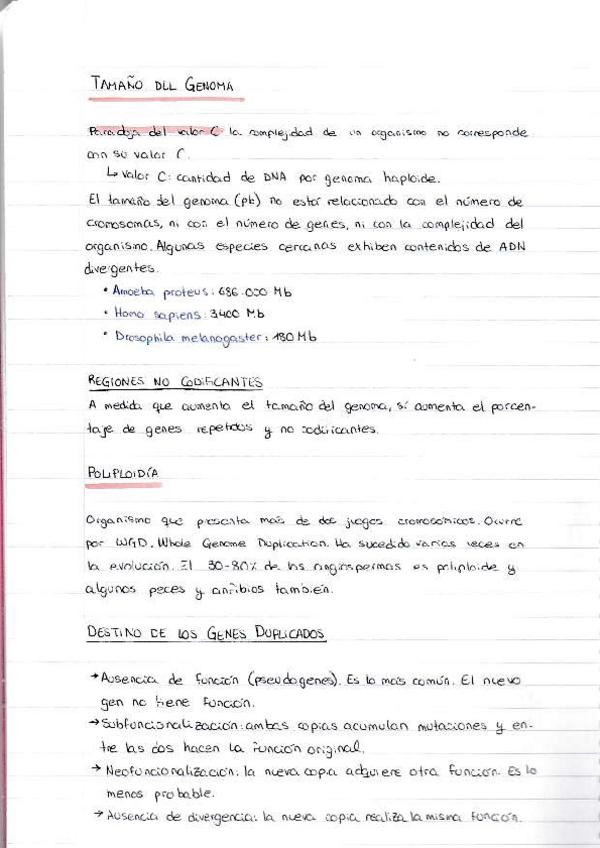 TAMAÑO DEL GENOMA
Paradoja del valor C la complejidad de un organismo no corresponde
con su valor C.
↳ Valor C: cantidad de DNA por genoma haploide.
El tamaño del genoma (pb) no está relacionado con el número de
cromosomas, ni con el número de genes, ni con la complejidad del
organismo. Algunas especies cercanas exhiben contenidos de ADN
divergentes.
• Amoeba proteus: 686.000 Mb
• Homo sapiens: 3400 Mb
• Drosophila melanogaster: 180 Mb
REGIONES NO CODIFICANTES
A medida que aumenta el tamaño del genoma, sí aumenta el porcen-
taje de genes repetidos y no codificantes.
POLIPLOIDÍA
Organismo que presenta más de dos juegos cromosómicos. Ocurre
por WGD. Whole Genome Duplication. Ha sucedido varias veces en
la evolución. El 30-80% de las angiospermas es poliploide y
algunos peces y anfibios también.
DESTINO DE LOS GENES DUPLICADOS
→ Ausencia de función (pseudogenes). Es lo más común. El nuevo
gen no tiene función.
→ Subfuncionalización: ambas copias acumulan mutaciones y en-
tre las dos hacen la función original.
→ Neofuncionalización: la nueva copia adquiere otra función. Es lo
menos probable.
→ Ausencia de divergencia: la nueva copia realiza la misma función.